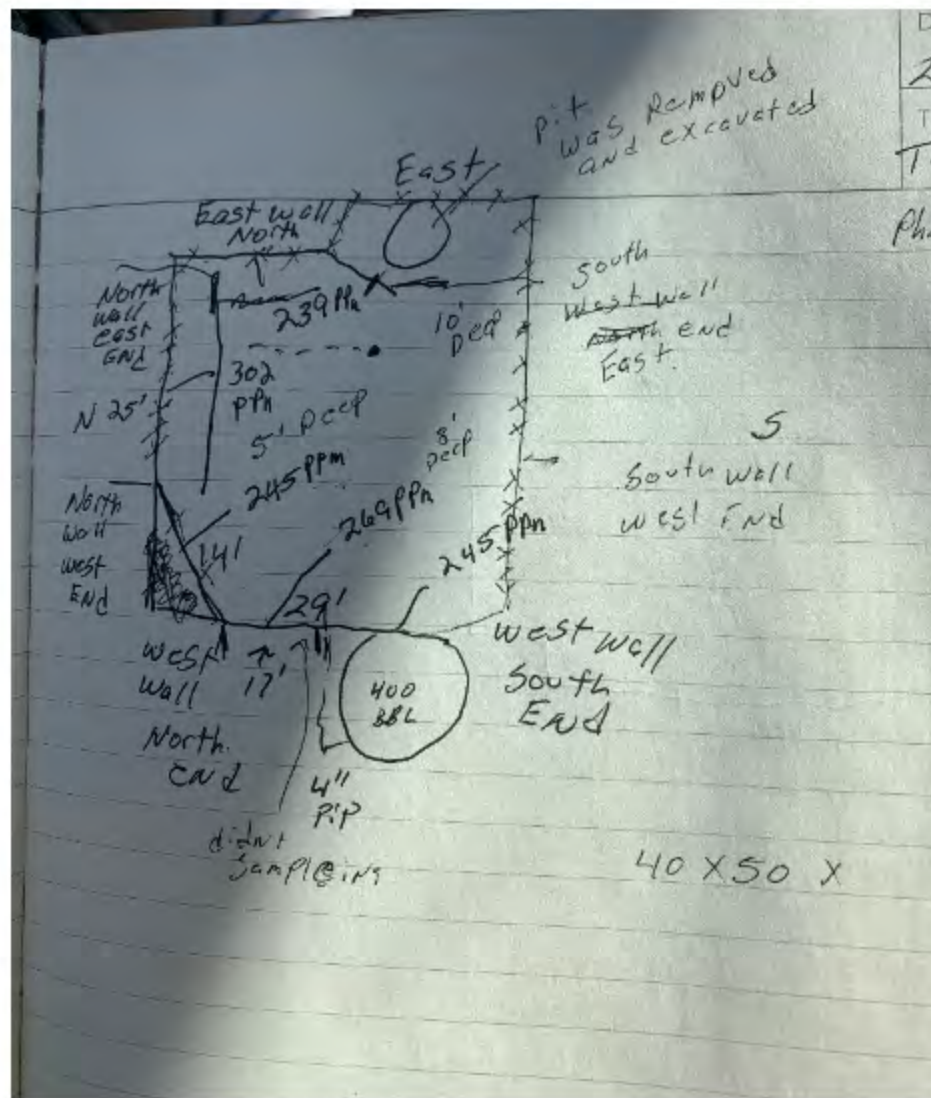 pit
was Removed
and excavated
East
East wall
North
North
wall
east
End
239 PPn
10'
Deep
South
West wall
North End
East.
302
PPn
N 25'
5' Deep
8'
Deep
S
South wall
West End
245 PPm
269 PPn
245 PPn
North
Wall
West
End
14'
29'
West
Wall
17'
North.
End
400
BBL
West Wall
South
End
4"
Pip
didnt
Sampleing
40 X 50 X